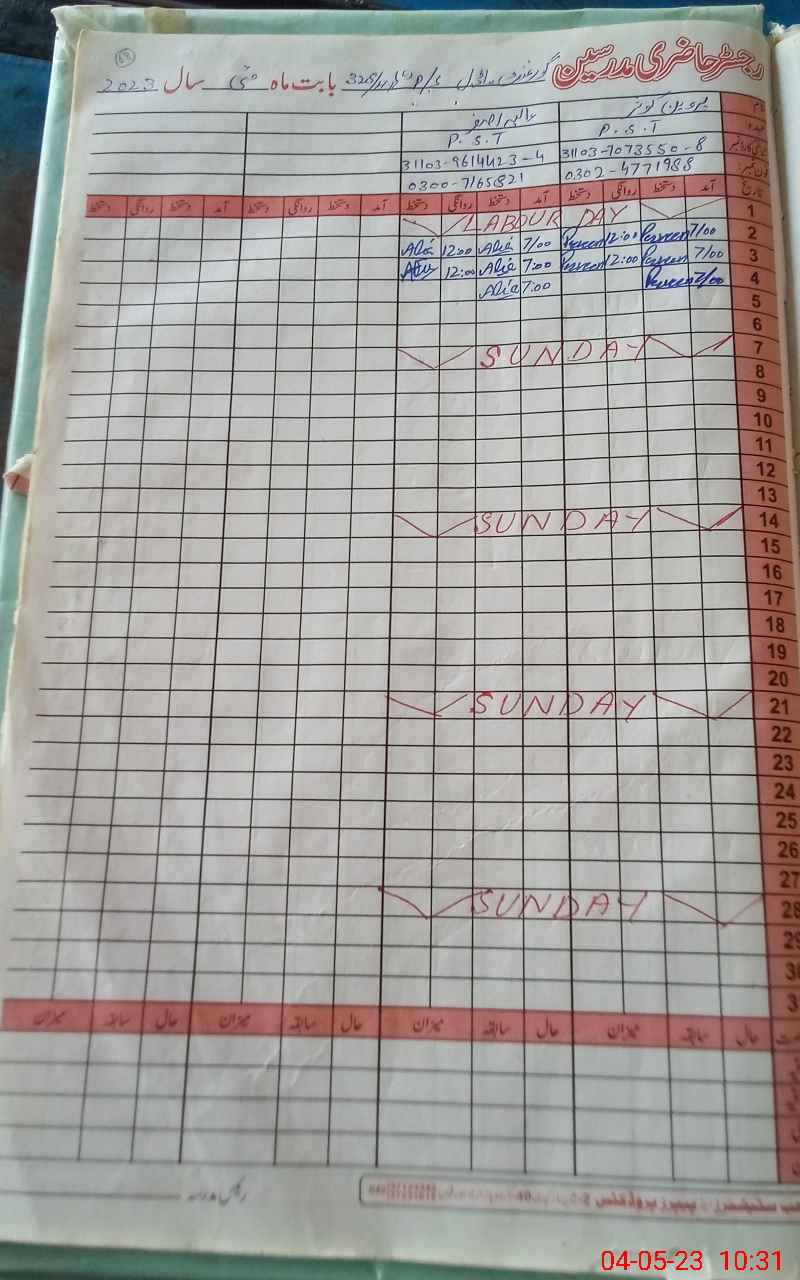 رجسٹر حاضری مدرسین گورنمنٹ ماڈل P/S بابت ماہ مئی سال 2023
68
نام پروین کوثر عالیہ اصغر
عہدہ P.S.T P.S.T
31103-7073550-8 31103-9614423-4
فون نمبر: 0302-4771988 0300-7165821
تاریخ آمد دستخط روانگی دستخط آمد دستخط روانگی دستخط آمد دستخط روانگی دستخط آمد دستخط روانگی دستخط
1 LABOUR DAY
2 7/00 Parveen 12:00 Parveen 7/00 Alia 12:00 Alia
3 7/00 Parveen 12:00 Parveen 7:00 Alia 12:00 Alia
4 7/00 Parveen 7:00 Alia
5
6
7 SUNDAY
8
9
10
11
12
13
14 SUNDAY
15
16
17
18
19
20
21 SUNDAY
22
23
24
25
26
27
28 SUNDAY
29
30
3
حال سابقہ میزان حال سابقہ میزان حال سابقہ میزان حال سابقہ میزان
رئیس مدرسہ
04-05-23 10:31